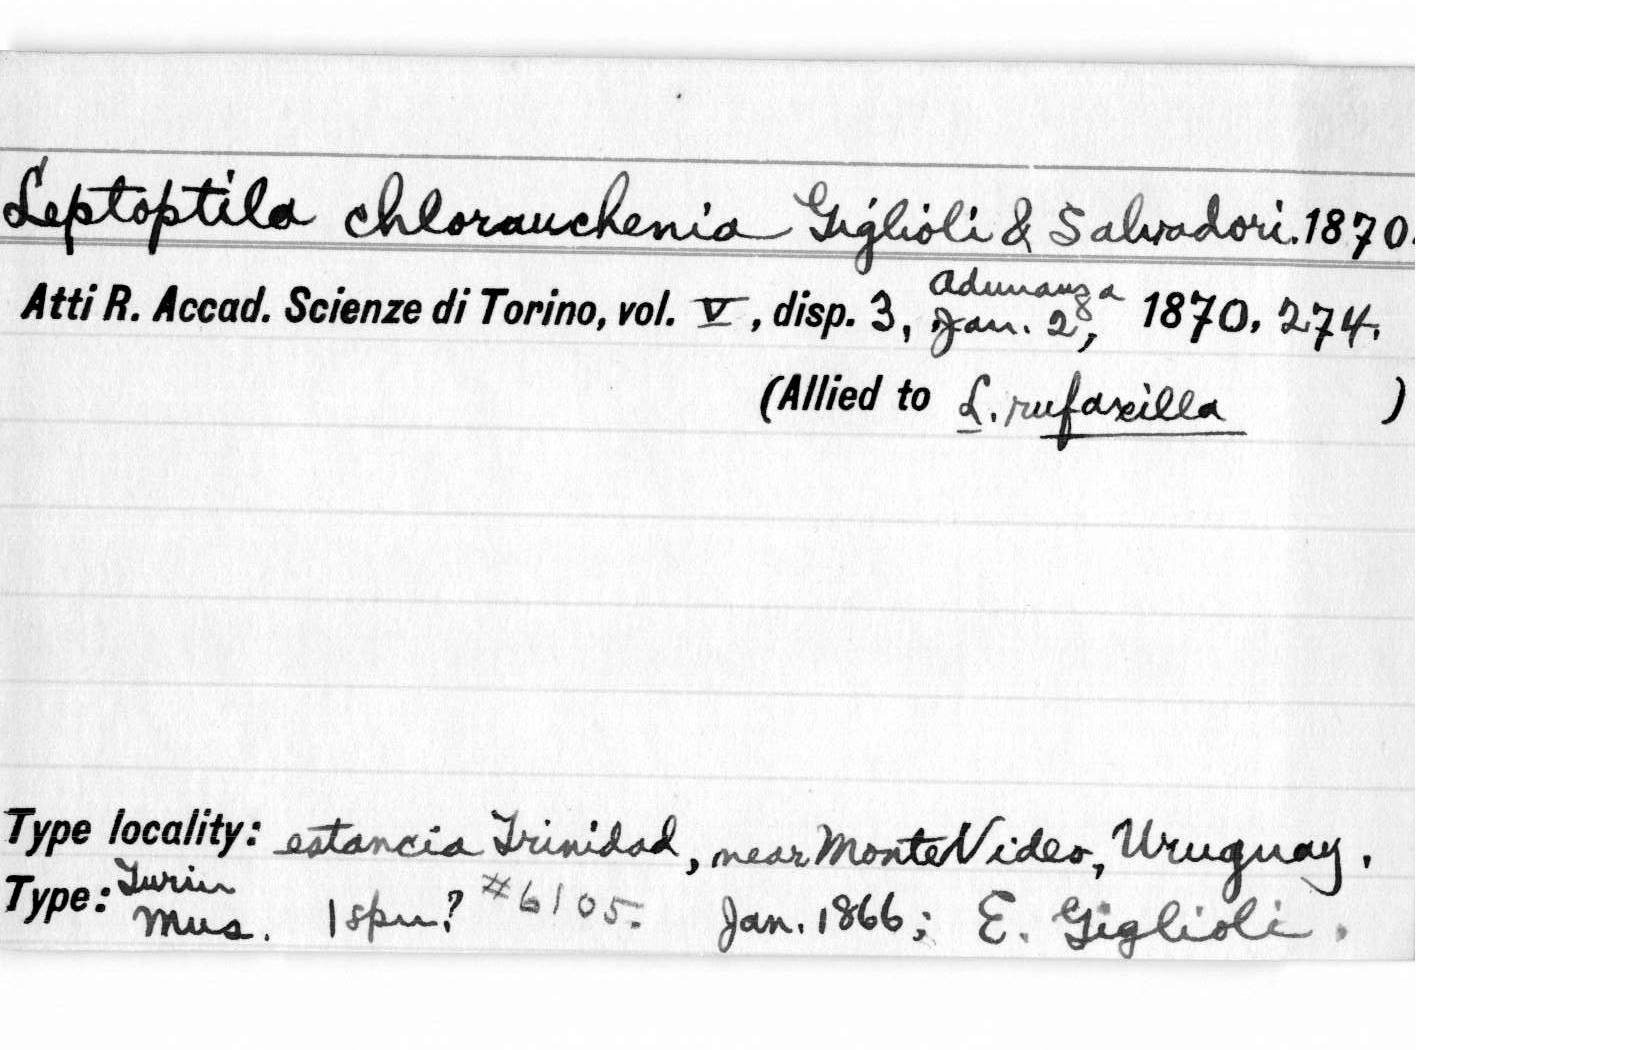 Leptoptila chlorauchenia Giglioli & Salvadori. 1870.
Atti R. Accad. Scienze di Torino, vol. V, disp. 3, Adunanza Jan. 28, 1870, 274.
(Allied to L. rufaxilla )
Type locality: estancia Trinidad, near MonteVideo, Uruguay.
Type: Turin Mus. 1 spn? #6105. Jan. 1866; E. Giglioli.